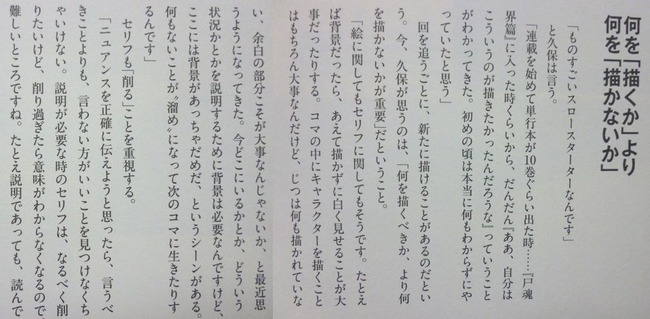 何を「描くか」より
何を「描かないか」
「ものすごいスロースターターなんです」
と久保は言う。
「連載を始めて単行本が10巻ぐらい出た時……『尸魂
界篇』に入った時くらいから、だんだん『ああ、自分は
こういうのが描きたかったんだろうな』っていうこと
がわかってきた。初めの頃は本当に何もわからずにや
っていたと思う」
回を追うごとに、新たに描けることがあるのだとい
う。今、久保が思うのは、「何を描くべきか、より何
を描かないかが重要」だということ。
「絵に関してもセリフに関してもそうです。たとえ
ば背景だったり、あえて描かずに白く見せることが大
事だったりする。コマの中にキャラクターを描くこと
はもちろん大事なんだけど、じつは何も描かれていな
い、余白の部分こそが大事なんじゃないか、と最近思
うようになってきた。今どこにいるかとか、どういう
状況かとかを説明するために背景は必要なんですけど、
ここには背景があっちゃだめだ、というシーンがある。
何もないことが〝溜め〟になって次のコマに生きたりす
るんです」
セリフも「削る」ことを重視する。
「ニュアンスを正確に伝えようと思ったら、言うべ
きことよりも、言わない方がいいことを見つけなくち
ゃいけない。説明が必要な時のセリフは、なるべく削
りたいけど、削り過ぎたら意味がわからなくなるので、
難しいところですね。たとえ説明であっても、読んで